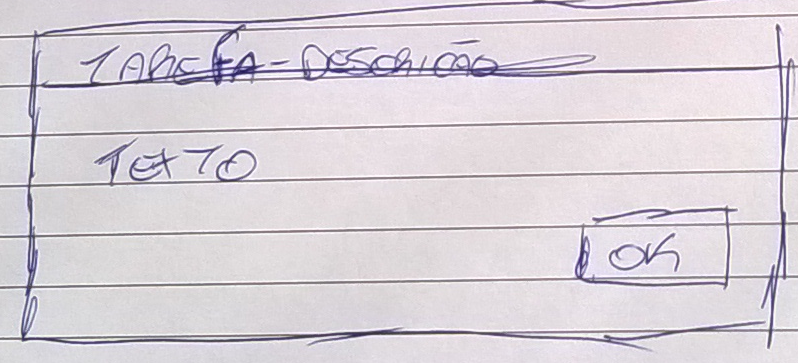 TAREFA - DESCRIÇÃO
TEXTO
OK